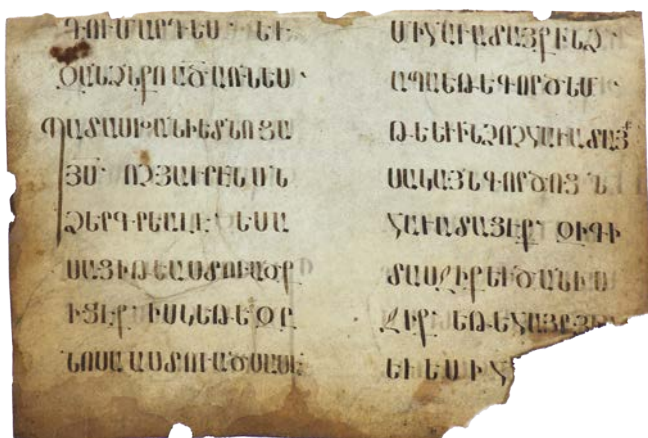 ԴՈՒՄԱՐԴԵՍ· ԵՒ
ԶԱՆՁՆՔՈԱԾԱՌՆԵՍ·
ՊԱՏԱՍԽԱՆԻԵՏՆՈՑԱ
ՅՍ· ՈՉՅԱՒՐԷՆՍՆ
ՁԵՐԳՐԵԱԼԷ· ԵՍԱ
ՍԱՑԻԹԵԱՍՏՈՒԱԾՔ
ԻՑԷՔ· ԻՍԿԵԹԵԶԸ
ՆՈՍԱԱՍՏՈՒԱԾՍԱՍԷ
ՄԻՀԱՒԱՏԱՅՔԻՆՁ·
ԱՊԱԵԹԵԳՈՐԾԵՄ·
ԹԵԵՒԻՆՁՈՉՀԱՒԱՏԱՅՔ
ՍԱԿԱՅՆԳՈՐԾՈՑՆ
ՀԱՒԱՏԱՑԷՔ· ԶԻԳԻ
ՏԱՍՋԻՔԵՒԾԱՆԻ
ՋԻՔ· ԵԹԵՀԱՅՐՅԻՍ
ԵՒԵՍԻՀ